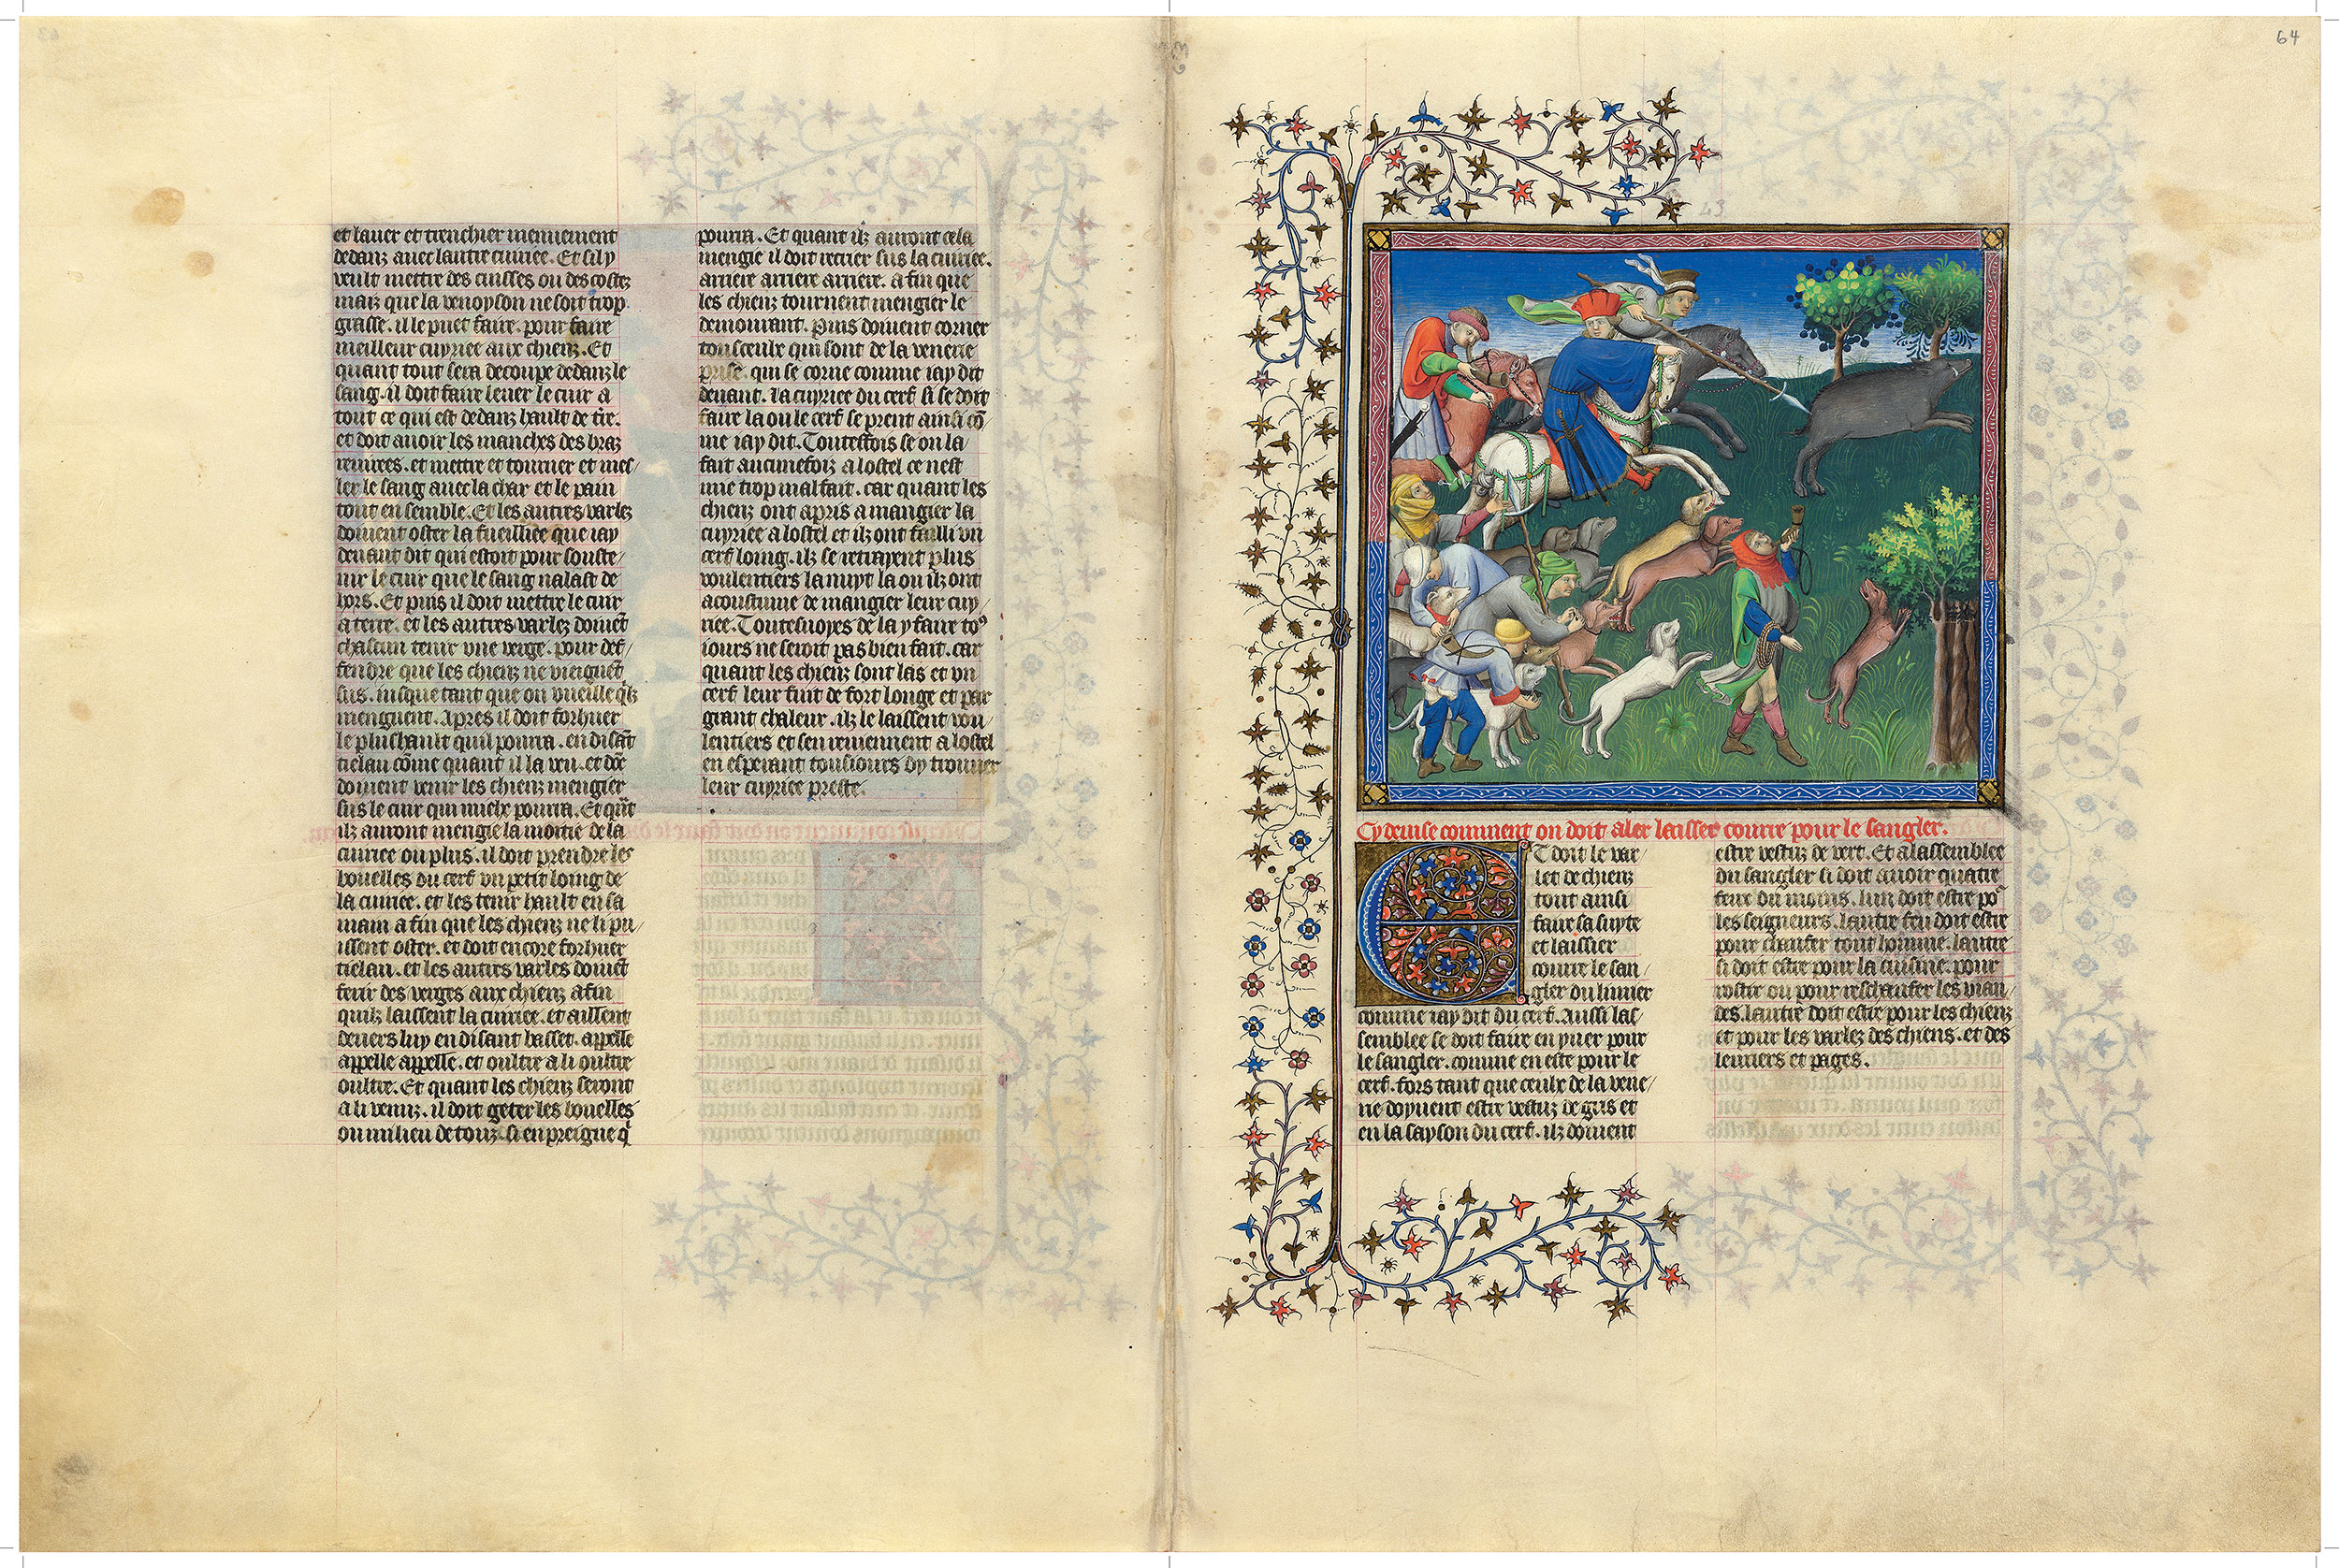 et lauer et trenchier menuement
dedanz auec lautre cuiriee. Et sil y
veult mettre des cuisses ou des costez
maiz que la venoyson ne soit trop
grasse. il le puet faire. pour faire
meilleur cuyriee aux chienz. Et
quant tout sera decoupe dedanz le
sang. il doit faire leuer le cuir a
tout ce qui est dedanz hault de tre.
et doit auoir les manches des braz
reuirees. et mettre et tourner et mes/
ler le sang auec la char et le pain
tout ensemble. Et les autres varlez
doiuent oster la fueilliee que iay
deuant dit qui estoit pour souste/
nir le cuir que le sang nalast de
hors. Et puis il doit mettre le cuir
a terre. et les autres varlez doiuet
chascun tenir vne verge. pour def/
fendre que les chienz ne vieignet
sus. iusque tant que on vueille qlz
menguent. Apres il doit forhuer
le plus hault quil pourra. en disat
tielau come quant il la veu. et doc
doiuent venir les chienz mengier
sus le cuir qui mielx pourra. Et qnt
ilz auront mengie la moitie de la
cuiriee ou plus. il doit prendre les
bouelles du cerf vn petit loing de
la cuiriee. et les tenir hault en sa
main a fin que les chienz ne li pu/
issent oster. et doit encore forhuer
tielau. et les autres varles doiuet
ferir des verges aux chienz afin
quilz laissent la cuiriee. et aillent
deuers luy en disant basset. appelle
appelle appelle. et oultre a li oultre
oultre. Et quant les chienz seront
a li venuz. il doit geter les bouelles
ou milieu de touz. si en preigne q
pourra. Et quant ilz auront cela
mengie il doit recrier sus la cuiriee.
arriere arriere arriere. a fin que
les chienz tournent mengier le
demourant. Puis doiuent corner
tous ceulx qui sont de la venerie
prise. qui se corne comme iay dit
deuant. La cuyriee du cerf si se doit
faire la ou le cerf se prent ainsi co
me iay dit. Toutesfois se on la
fait aucunefoiz a lostel ce nest
mie trop mal fait. car quant les
chienz ont apris a mangier la
cuyriee a lostel et ilz ont failli vn
cerf loing. ilz se retrayent plus
voulentiers la nuyt la ou ilz ont
acoustume de mangier leur cuy/
riee. Toutesuoyes de la y faire to9
iours ne seroit pas bien fait. car
quant les chienz sont las et vn
cerf leur fuit de fort longe et par
grant chaleur. ilz le laissent vou/
lentiers et sen reuiennent a lostel
en esperant tousiours dy trouuer
leur cuyriee preste.
64
43
Cy deuise comment on doit aler laisser courre pour le sangler.
ET doit le var/
let de chienz
tout ainsi
faire sa suyte
et laissier
courre le san/
gler du limier
comme iay dit du cerf. Aussi las/
semblee se doit faire en yuer pour
le sangler. comme en este pour le
cerf. fors tant que ceulx de la vene/
rie doyuent estre vestuz de gris et
en la sayson du cerf. ilz doiuent
estre vestuz de vert. Et a lassemblee
du sangler si doit auoir quatre
feux du moins. lun doit estre po
les seigneurs. lautre feu doit estre
pour chaufer tout homme. lautre
si doit estre pour la cuisine. pour
rostir ou pour reschaufer les vian/
des. lautre doit estre pour les chienz
et pour les varlez des chiens. et des
leuriers et pages.